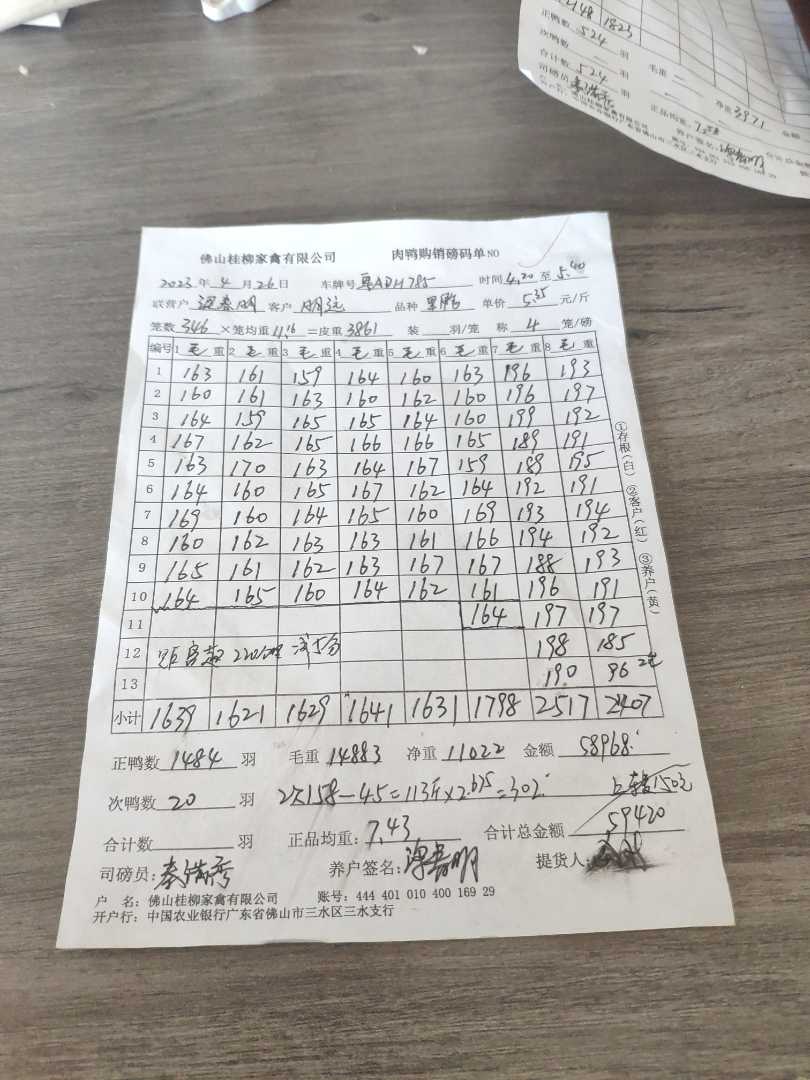 1148 1823
正鸭数 524 羽
次鸭数 — 羽 毛重 —
合计数 524 羽 净重 3971 金额
司磅员 秦满秀 正品均重: 7.58
佛山桂柳家禽有限公司 养户签名:
佛山桂柳家禽有限公司 肉鸭购销磅码单 NO
2023年 4 月 26 日 车牌号 粤ADH785 时间 4.20 至 5.40
联营户 客户 明远 品种 黑鸭 单价 5.35 元/斤
笼数 346 ×笼均重 11.16 =皮重 3861 装 羽/笼 称 4 笼/磅
编号 1 毛 重 2 毛 重 3 毛 重 4 毛 重 5 毛 重 6 毛 重 7 毛 重 8 毛 重
1 163 161 159 164 160 163 196 193
2 160 161 163 160 162 160 196 197
3 164 159 165 165 164 160 199 192
4 167 162 165 166 166 165 189 191
5 163 170 163 164 167 159 189 195
6 164 160 165 167 162 164 192 191
7 169 160 164 165 160 169 193 194
8 160 162 163 163 161 166 194 192
9 165 161 162 163 167 167 188 193
10 164 165 160 164 162 161 196 191
11 164 197 197
12 距离超220公里 减5分 198 185
13 190 96 2笼
小计 1639 1621 1629 1641 1631 1798 2517 2407
①存根(白) ②客户(红) ③养户(黄)
正鸭数 1484 羽 毛重 14883 净重 11022 金额 58968.
次鸭数 20 羽 2笼158-45=113斤×2.675=302. 150元
合计数 羽 正品均重: 7.43 合计总金额 59420
司磅员: 秦满秀 养户签名: 提货人:
户 名: 佛山桂柳家禽有限公司 账号: 444 401 010 400 169 29
开户行: 中国农业银行广东省佛山市三水区三水支行